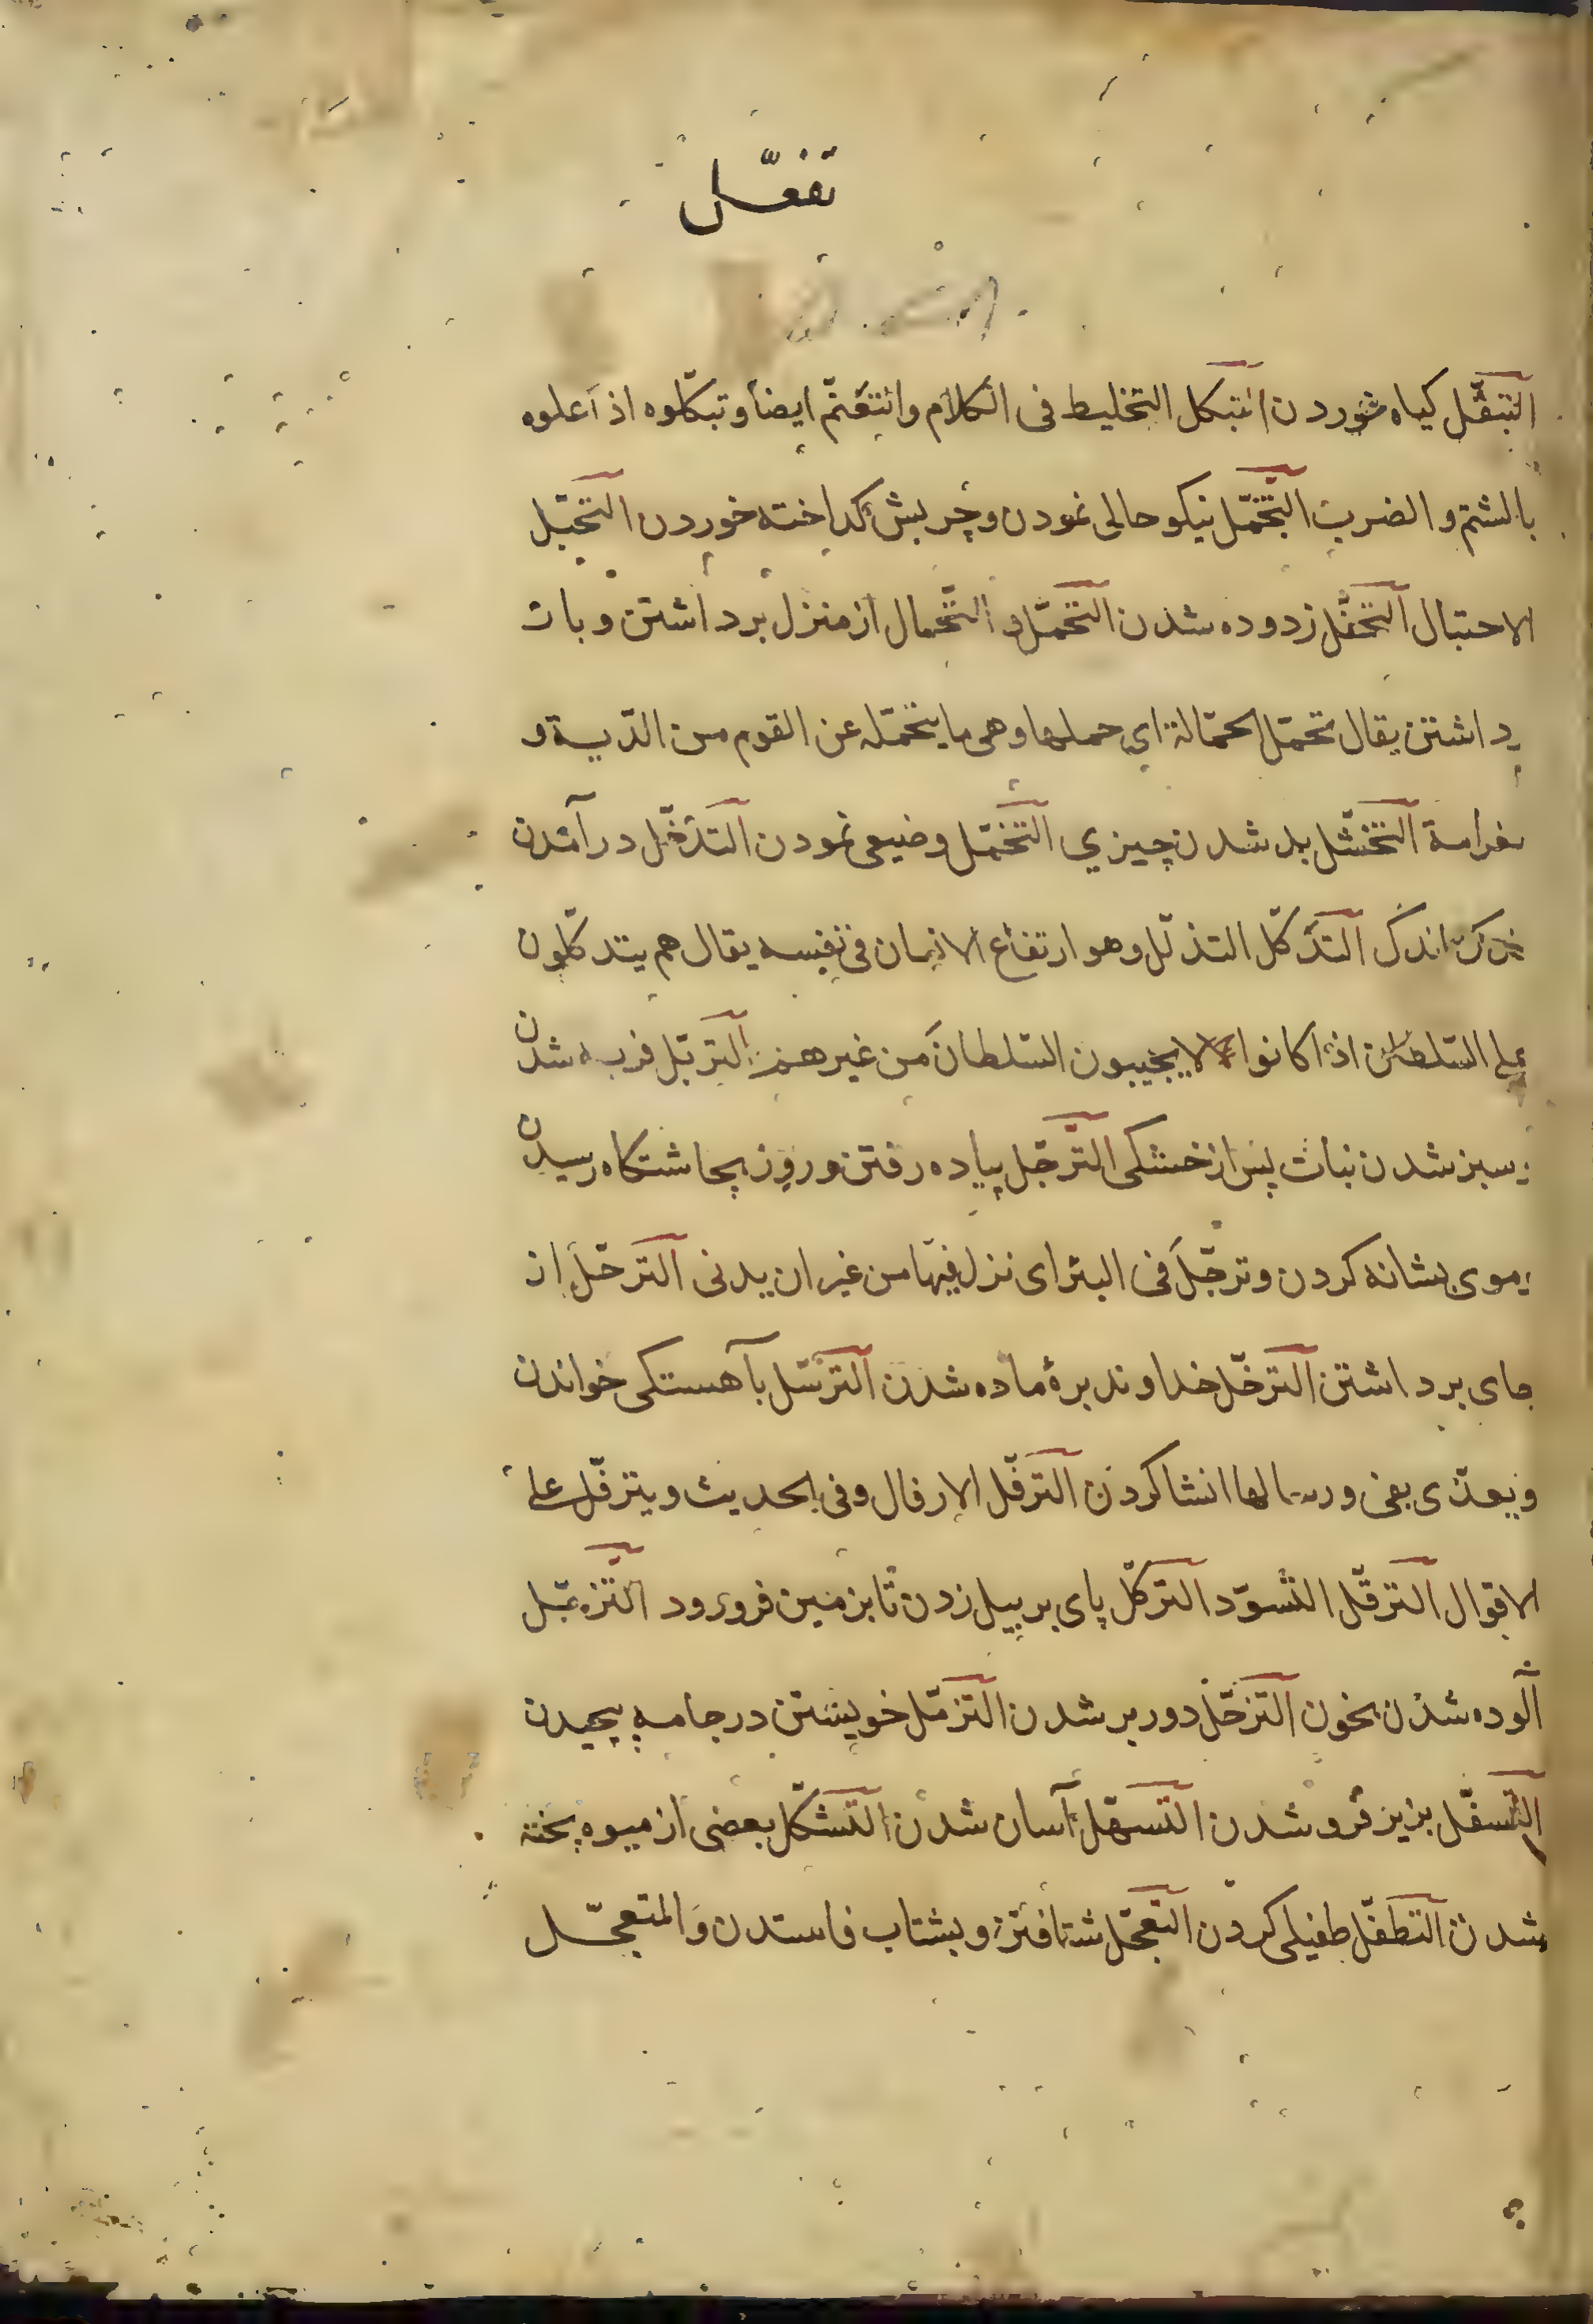 تفعّل
التبقّل كياه خوردن التبكل التخليط فى الكلام والتغنّم ايضا وتبكّلوه اذ اعلوه
بالشتم والضرب التجمّل نيكو حالى نمودن وچربش كداخته خوردن التحبّل
الاحتبال التحفّل زدوده شدن التحمّل والتحمال از منزل برداشتن وبار
داشتن يقال تحمّل الحمّالة اى حملها وهى ما يتحمّله عن القوم من الدّية و
لغرامة التخشّل بد شدن چيزي التخمّل وضيعى نمودن التدخّل درآمدن
اندك التدكّل التدلّل وهو ارتفاع الانسان فى نفسه يقال هم يتدكّلون
على السّلطان اذا كانوا لا يجيبون السّلطان من غيرهم التربّل فربه شدن
سبز شدن نبات پس از خشكى الترجّل پياده رفتن وروز بچاشتكاه رسيدن
موى بشانه كردن وترجّل فى البئر اى نزل فيها من غير ان يدلى الترحّل از
جاى برداشتن الترخّل خداوند برهٔ ماده شدن الترسّل بآهستكى خواندن
ويعدّى بفى ورسالها انشا كردن الترفّل الارفال وفى الحديث ويترفّل على
الاقوال الترقّل التسوّد التركّل پاى بر بيل زدن تا بزمين فرو رود التزعّبل
آلوده شدن بخون التزحّل دور بر شدن التزمّل خويشتن در جامه پيچيدن
التسفّل بزير فرو شدن التسهّل آسان شدن التشكّل بعضى از ميوه پخته
شدن التطفّل طفيلى كردن التعجّل شتافتن وبشتاب فاستدن والمتعجّل